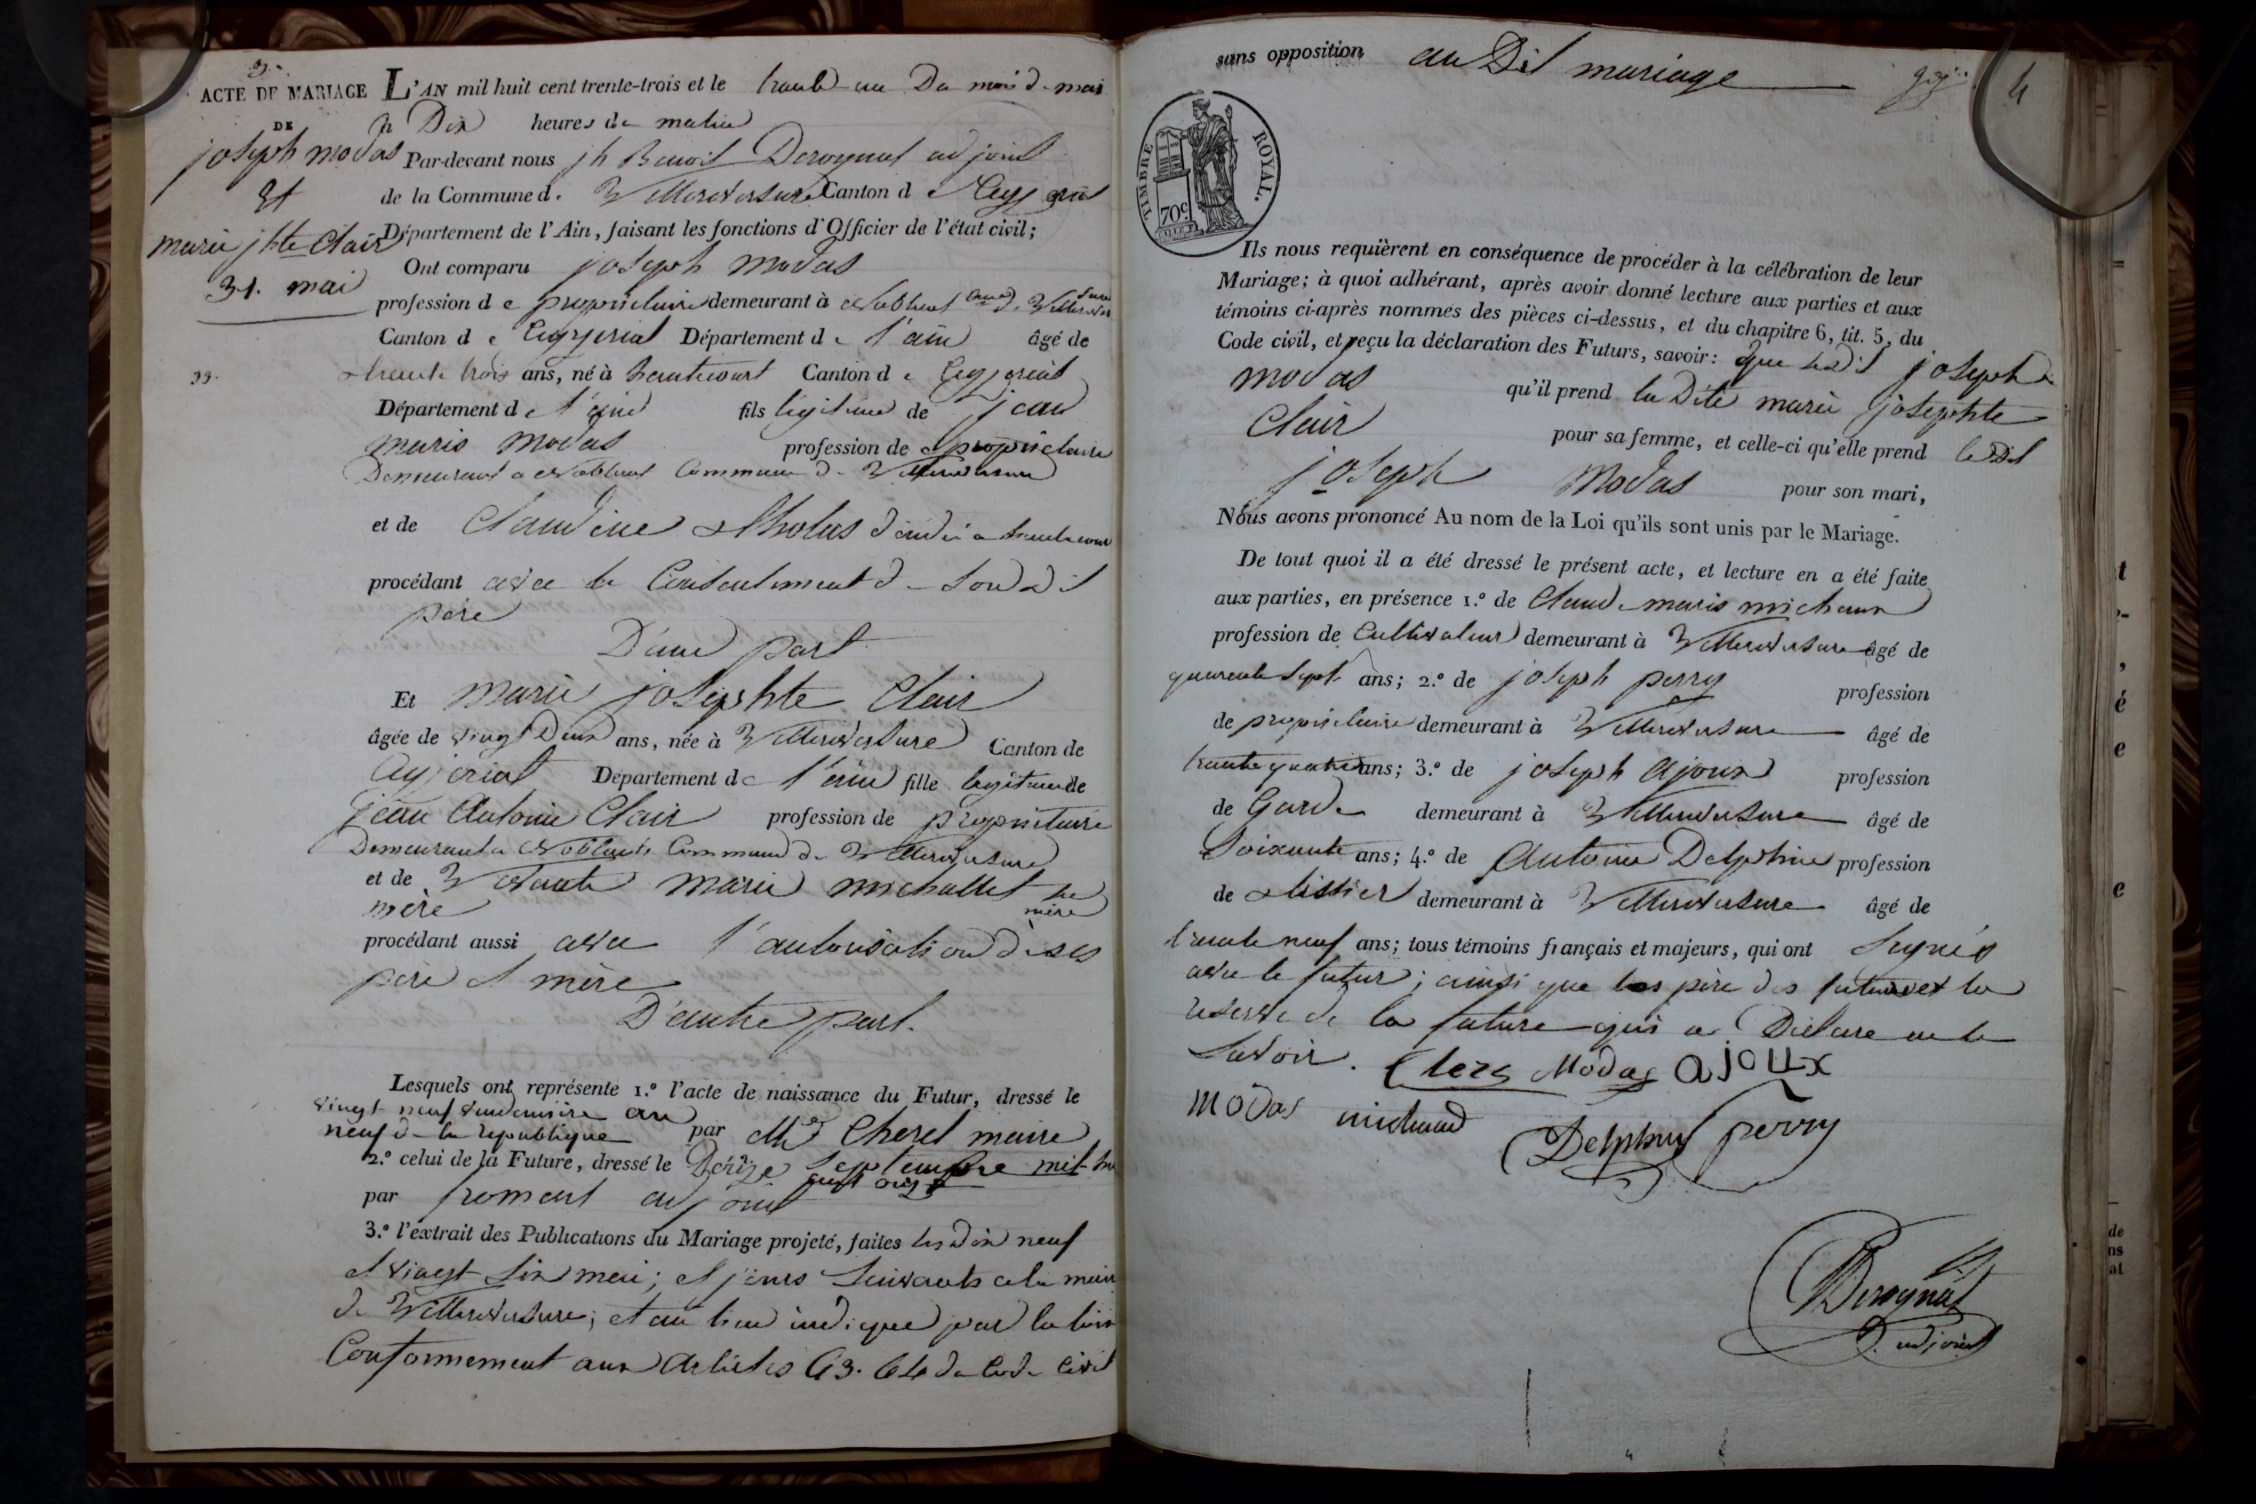 9.
ACTE DE MARIAGE
DE
joseph modas
Et
marie jhte Clair
31. mai
99.
L'AN mil huit cent trente-trois et le trente un Du mois de mai
à Dix heures du matin
Par-devant nous jh Benoit Derognat adjoint
de la Commune de Villereversure Canton de Ceyzeriat
Département de l'Ain, faisant les fonctions d'Officier de l'état civil;
Ont comparu joseph modas
profession de propriétaire demeurant à Noblent Cune de Villereversure
Canton de Ceyzeriat Département de l'ain âgé de
trente trois ans, né à hautecourt Canton de Ceyzeriat
Département de l'ain fils légitime de jean
marie modas profession de propriétaire
Demeurant a Noblent Commune de Villereversure
et de Claudine Tholas décédée a hautecour
procédant avec le Consentement de son dit
père
D'une part
Et marie josephte Clair
âgée de vingt Deux ans, née à Villereversure Canton de
Ceyzeriat Departement de l'ain fille légitime de
jean Antoine Clair profession de propriétaire
Demeurant a Noblent Commune de Villereversure
et de marie michallet sa
mère
procédant aussi avec l'autorisation de ses
père et mère
D'autre part.
Lesquels ont représente 1.° l'acte de naissance du Futur, dressé le
vingt neuf vendemiaire an
neuf de la republique par Mr Cherel maire
2.° celui de la Future, dressé le Douze septembre mil hui
cent onze
par froment adjoint
3.° l'extrait des Publications du Mariage projeté, faites les dix neuf
et vingt six mai; et jours suivants a la mairie
de Villereversure; et au lieu indiqué par la loi
Conformement aux Articles 63. 64 du Code Civil
sans opposition au Dit mariage
4
TIMBRE ROYAL.
70c
Ils nous requièrent en conséquence de procéder à la célébration de leur
Mariage; à quoi adhérant, après avoir donné lecture aux parties et aux
témoins ci-après nommes des pièces ci-dessus, et du chapitre 6, tit. 5, du
Code civil, et reçu la déclaration des Futurs, savoir: que le dit joseph
modas qu'il prend la Dite marie josephte
Clair pour sa femme, et celle-ci qu'elle prend le Dit
joseph Modas pour son mari,
Nous avons prononcé Au nom de la Loi qu'ils sont unis par le Mariage.
De tout quoi il a été dressé le présent acte, et lecture en a été faite
aux parties, en présence 1.° de Claude marie michaux
profession de Cultivateur demeurant à Villereversure âgé de
quarente sept ans; 2.° de joseph perry profession
de propriétaire demeurant à Villereversure âgé de
trente quatre ans; 3.° de joseph Ajoux profession
de Garde demeurant à Villereversure âgé de
Soixante ans; 4.° de Antoine Delphine profession
de tissier demeurant à Villereversure âgé de
trente neuf ans; tous témoins français et majeurs, qui ont signés
avec le futur; ainsi que les père des futurs et la
reserve de la future qui a Déclaré ne le
savoir. Clerc Modas AJOUX
modas michaud
Delphin perry
Derognat
adjoint